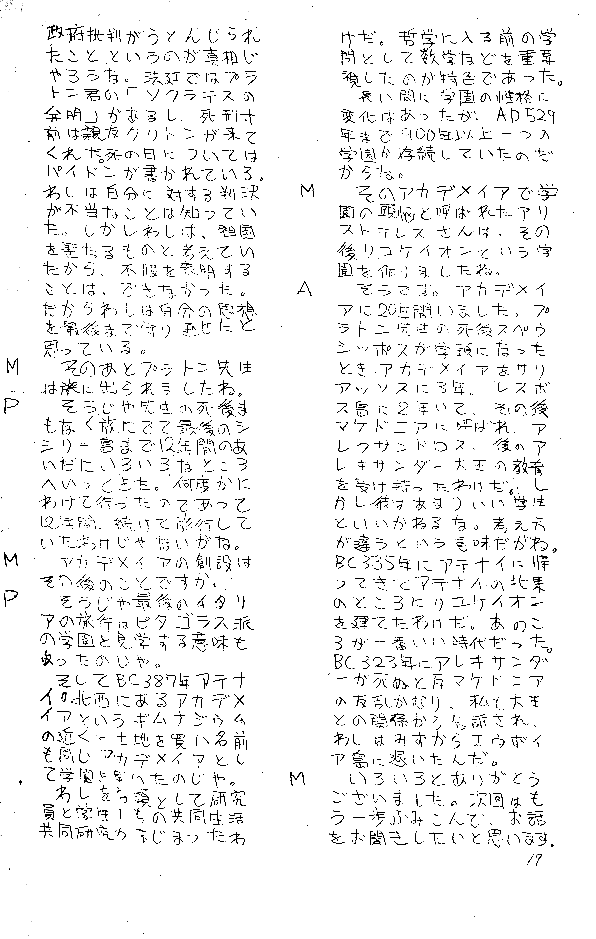 政府批判がうとんじられ
たこと、というのが真相じ
ゃろうな。法廷ではプラ
トン君の「ソクラテスの
弁明」があるし、死刑寸
前は親友クリトンが来て
くれた。死の日については
パイドンが書かれている。
わしは自分に対する判決
が不当なことは知ってい
た。しかしわしは、祖国
を聖なるものと考えてい
たから、不服を表明する
ことは、できなかった。
だからわしは自分の思想
を最後まで守り通せたと
思っている。
M そのあとプラトン先生
は旅に出られましたね。
P そうじゃ先生の死後ま
もなく旅にでて最後のシ
シリー島まで12年間のあ
いだにいろいろなところ
へいってきた。何度かに
わけて行ったのであって
12年間、続けて旅行して
いたわけじゃないがね。
M アカデメイアの創設は
その後のことですか。
P そうじゃ最後のイタリ
アの旅行はピタゴラス派
の学園を見学する意味も
あったのじゃ。
そしてBC387年アテナ
イの北西にあるアカデメ
イアというギムナジウム
の近くに土地を買い名前
も同じアカデメイアとし
て学園を開いたのじゃ。
わしを頭として研究
員と学生たちの共同生活
共同研究がはじまったわ
けだ。哲学に入る前の学
問として数学などを重要
視したのが特色であった。
長い間に学園の性格に
変化はあったが、AD529
年まで900年以上一つの
学園が存続していたのだ
からな。
M そのアカデメイアで学
園の頭脳と呼ばれたアリ
ストテレスさんは、その
後リュケイオンという学
園を作りましたね。
A そうです。アカデメイ
アに20年間いました。プ
ラトン先生の死後スペウ
シッポスが学頭になった
とき、アカデメイアをサリ
アッソスに3年、レスボ
ス島に2年いて、その後
マケドニアに呼ばれ、ア
レクサンドロス、後のア
レキサンダー大王の教育
を受け持ったわけだ。し
かし彼はあまりいい学生
といいかねるな。考え方
が違うという意味だがね。
BC335年にアテナイに帰
ってきてアテナイの北東
のところにリュケイオン
を建てたわけだ。あのこ
ろが一番いい時代だった。
BC323年にアレキサンダ
ーが死ぬと反マケドニア
の反乱がおり、私も大王
との関係から告訴され、
わしはみずからエウボイ
ア島に退いたんだ。
M いろいろとありがとう
ございました。次回はも
う一歩ふみこんで、お話
をお聞きしたいと思います。
19